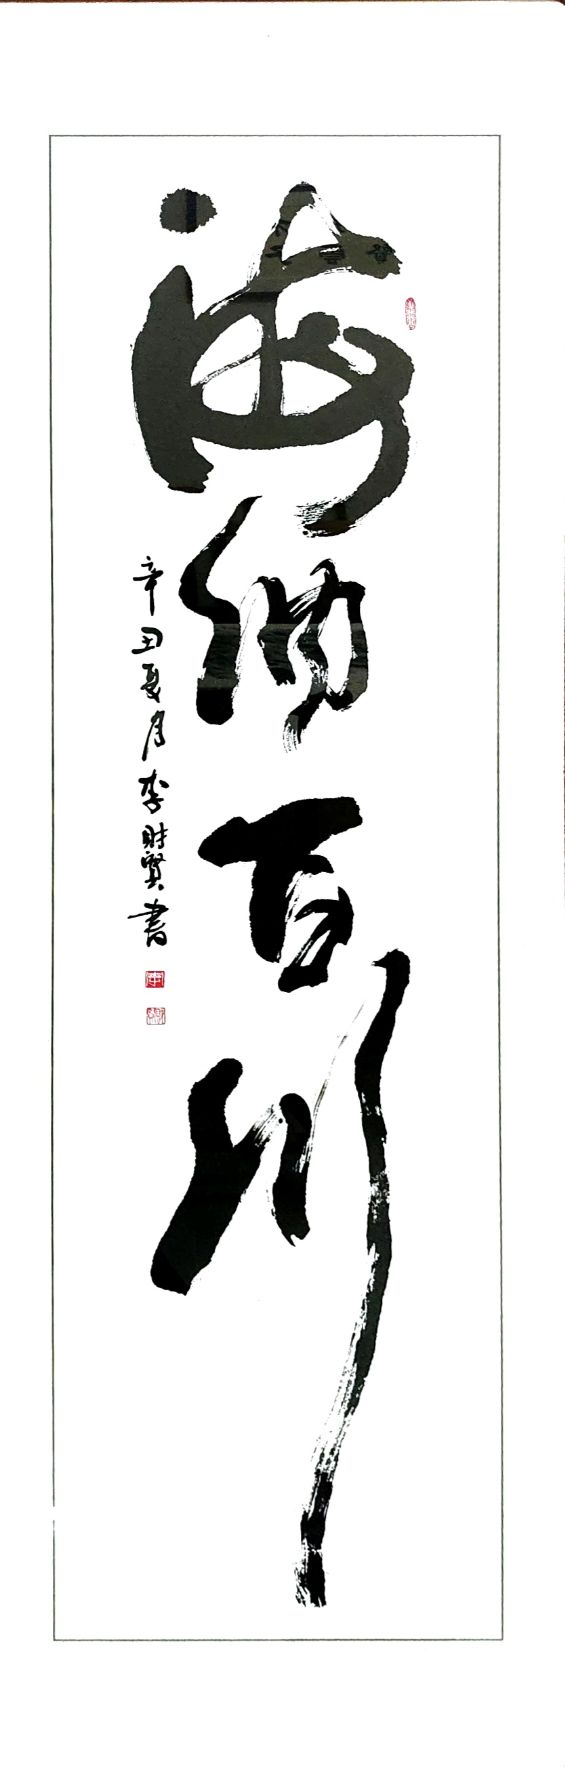 海納百川
辛丑夏月李財賢書